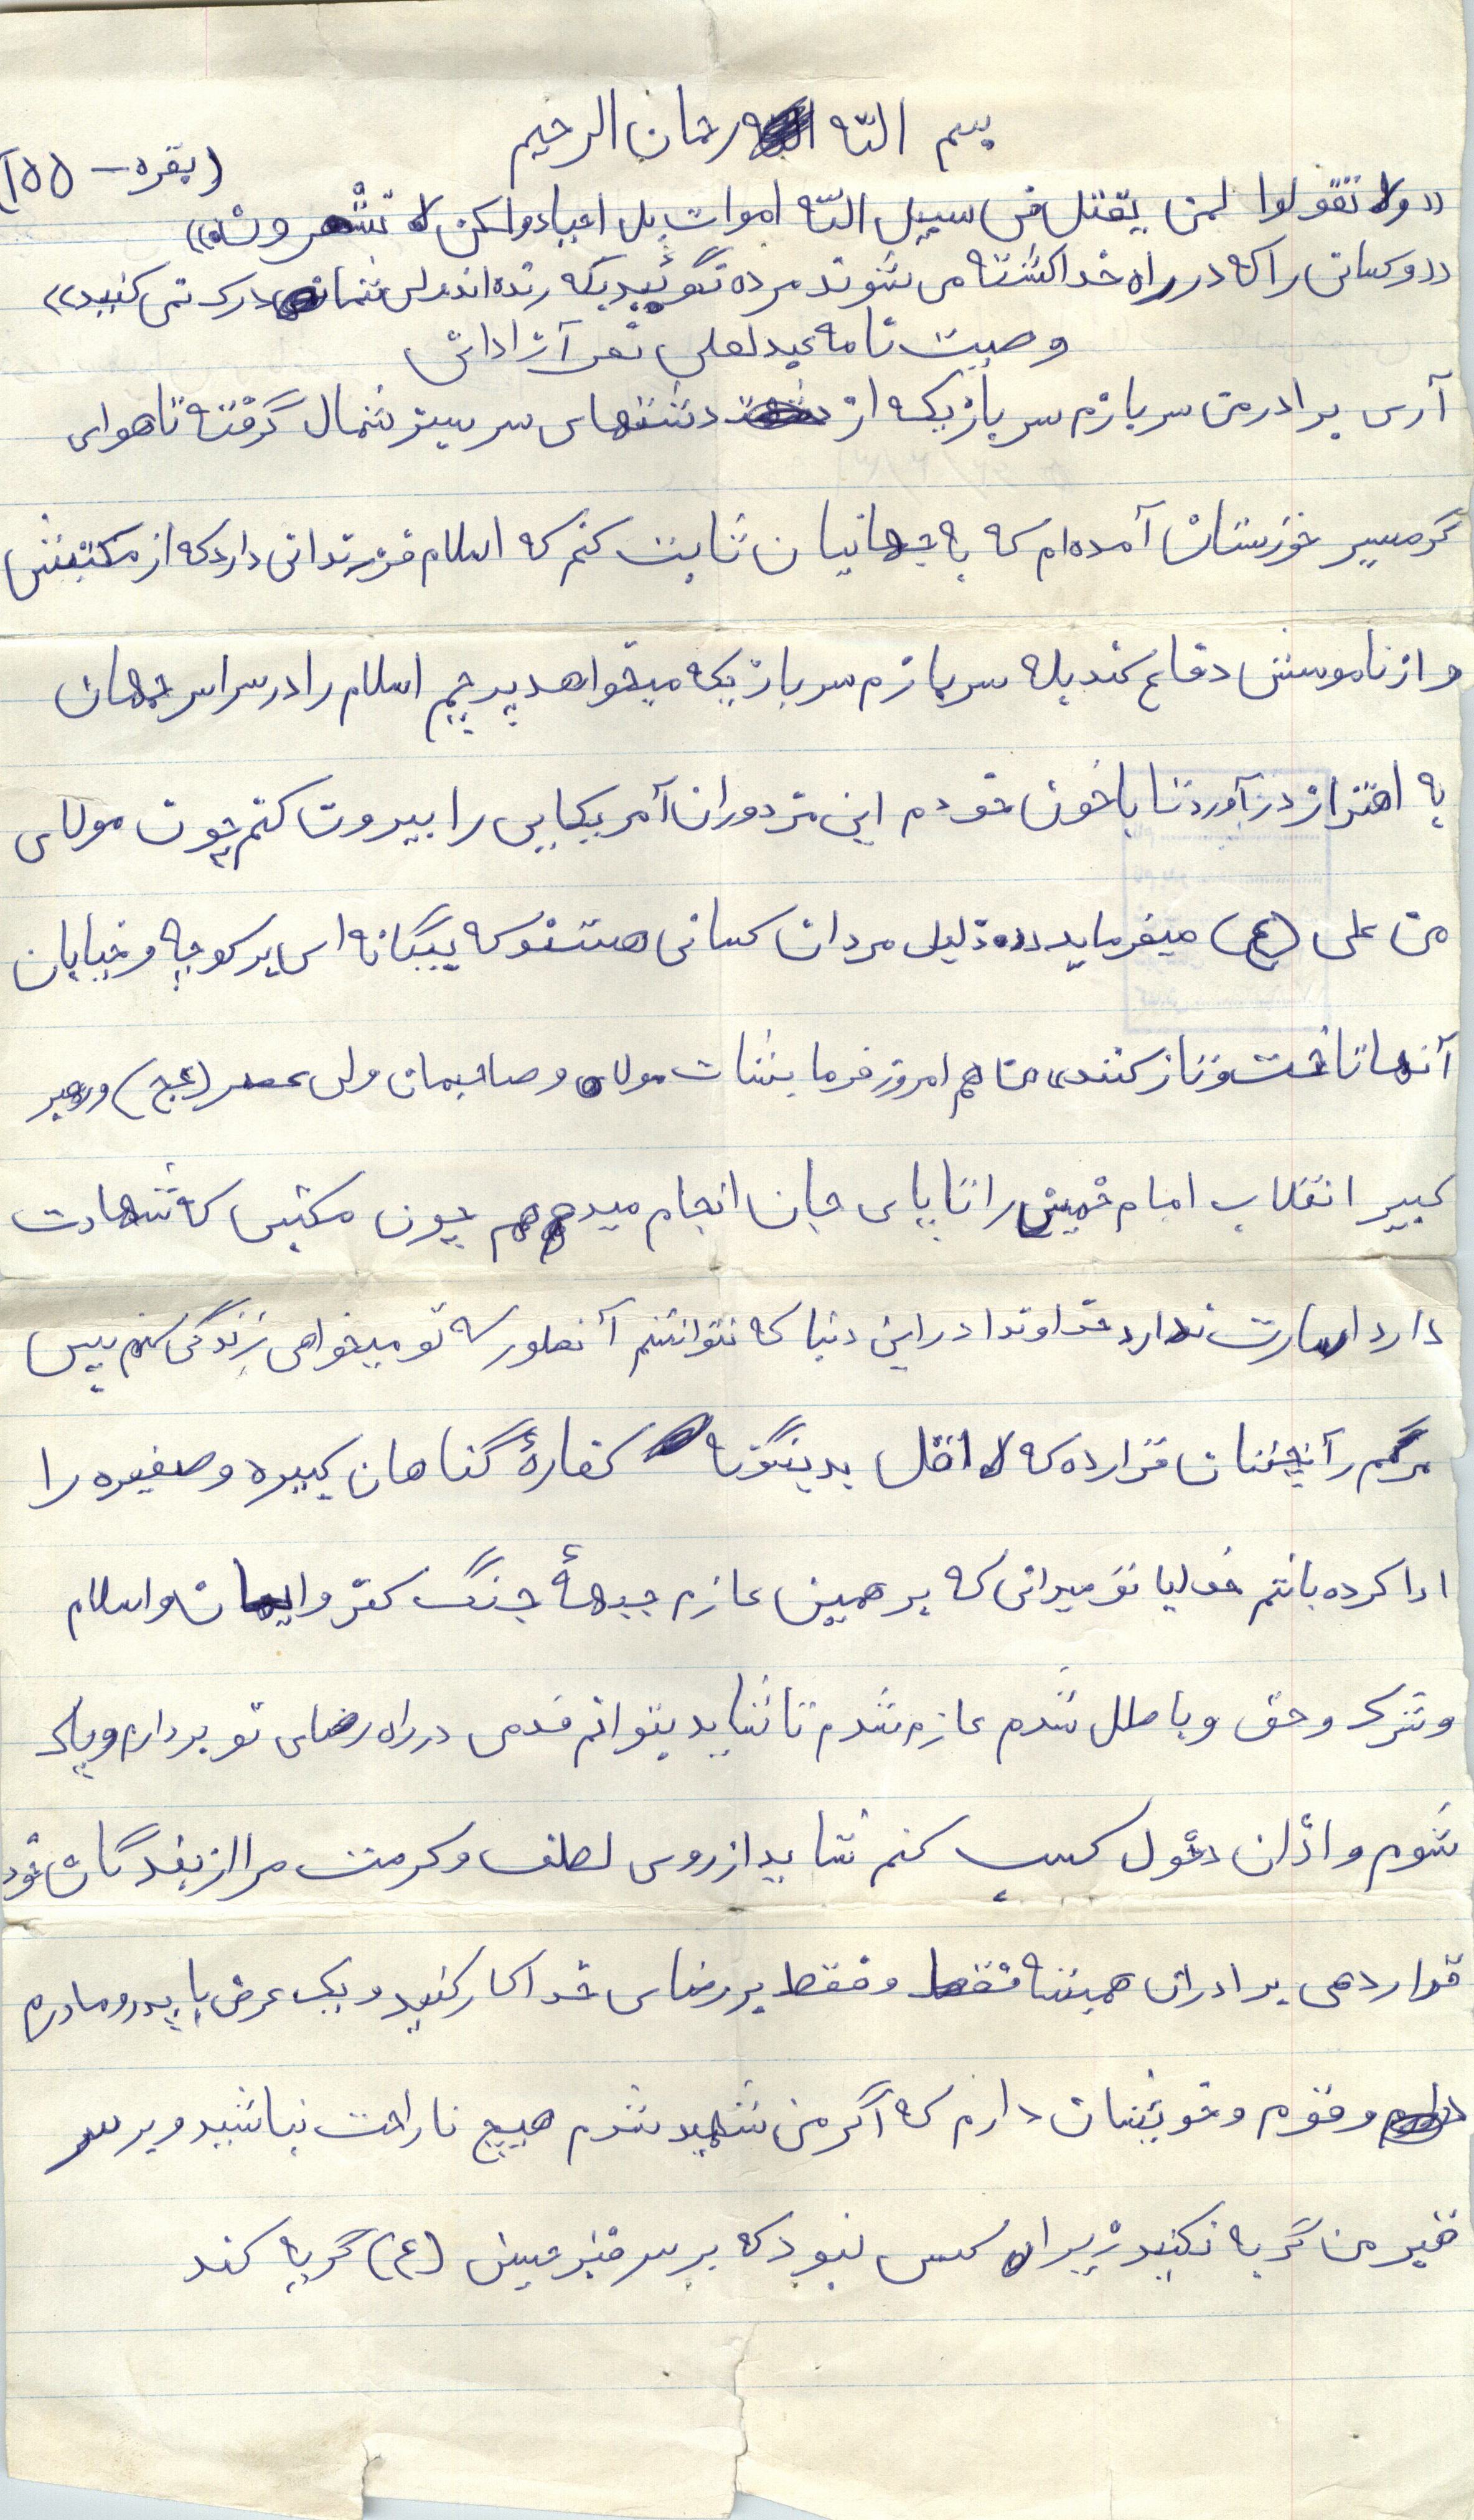 بسم الله الرحمان الرحیم
(بقره – ۱۵۵)
«ولا تقولوا لمن یقتل فی سبیل الله اموات بل احیاء ولکن لا تشعرون»
«و کسانی را که در راه خدا کشته می شوند مرده نگوئید بلکه زنده اند ولی شما درک نمی کنید»
وصیت نامه عبدلعلی تقی آزادانی
آری برادر من سربازم سربازیکه از دشتهای سرسبز شمال گرفته تا هوای
گرمسیر خوزستان آمده ام که به جهانیان ثابت کنم که اسلام فرزندانی دارد که از مکتبش
و از ناموسش دفاع کند بله سربازم سربازیکه میخواهد پرچم اسلام را در سراسر جهان
به اهتزاز در آورد تا با خون خودم این مزدوران آمریکایی را بیرون کنم چون مولای
من علی (ع) میفرماید «ذلیل مردان کسانی هستند که بیگانه ای بر کوچه و خیابان
آنها تاخت و تاز کنند» من هم امروز فرمایشات مولای و صاحبمان ولی عصر (عج) و رهبر
کبیر انقلاب امام خمینی را تا پای جان انجام میدهم چون مکتبی که شهادت
دارد اسارت ندارد خداوندا در این دنیا که نتوانستم آنطور که تو میخواهی زندگی کنم پس
مرگم را آنچنان قرار ده که لااقل بدینگونه کفارهٔ گناهان کبیره و صغیره را
ادا کرده باشم خدایا تو میدانی که بر همین عازم جبههٔ جنگ کفر و ایمان و اسلام
و شرک و حق و باطل شدم عازم شدم تا شاید بتوانم قدمی در راه رضای تو بردارم و پاک
شوم و اذان دخول کسب کنم شاید از روی لطف و کرمت مرا از بندگان خود
قرار دهی برادران همیشه فقط و فقط بر رضای خدا کار کنید و یک عرض با پدر و مادرم
و قوم و خویشان دارم که اگر من شهید شدم هیچ ناراحت نباشید و بر سر
قبر من گریه نکنید زیرا کسی نبود که بر سر قبر حسین (ع) گریه کند